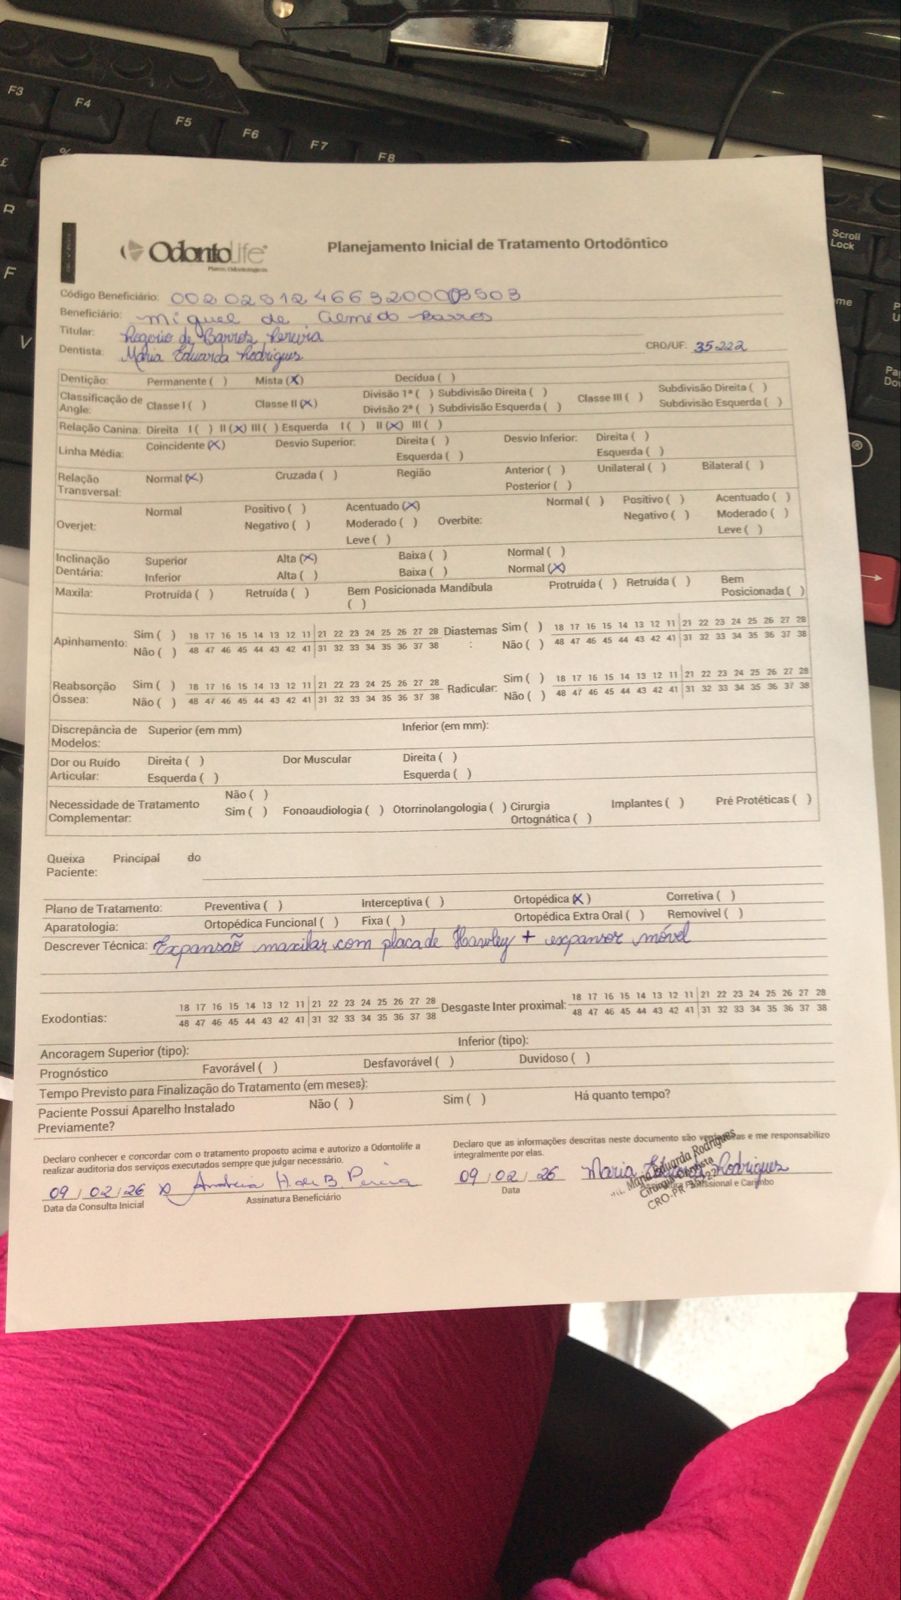 F3
F4
F5
F6
F7
F8
£
%
R
F
V
Scroll
Lock
OdontoLife
Planos Odontológicos
Planejamento Inicial de Tratamento Ortodôntico
Código Beneficiário:
Beneficiário: Miguel de Barros
Titular: Rogerio de Barros Pereira
Dentista: Maria Eduarda Rodrigues CRO/UF: 35222
Dentição: Permanente ( ) Mista (X) Decídua ( )
Classificação de Angle: Classe I ( ) Classe II (X) Divisão 1ª ( ) Subdivisão Direita ( ) Classe III ( ) Subdivisão Direita ( )
Divisão 2ª ( ) Subdivisão Esquerda ( ) Subdivisão Esquerda ( )
Relação Canina: Direita I ( ) II (X) III ( ) Esquerda I ( ) II (X) III ( )
Linha Média: Coincidente (X) Desvio Superior: Direita ( ) Desvio Inferior: Direita ( )
Esquerda ( ) Esquerda ( )
Relação Transversal: Normal (X) Cruzada ( ) Região Anterior ( ) Unilateral ( ) Bilateral ( )
Posterior ( )
Overjet: Normal Positivo ( ) Acentuado (X) Overbite: Normal ( ) Positivo ( ) Acentuado ( )
Negativo ( ) Moderado ( ) Negativo ( ) Moderado ( )
Leve ( ) Leve ( )
Inclinação Dentária: Superior Alta (X) Baixa ( ) Normal ( )
Inferior Alta ( ) Baixa ( ) Normal (X)
Maxila: Protruída ( ) Retruída ( ) Bem Posicionada ( ) Mandíbula Protruída ( ) Retruída ( ) Bem Posicionada ( )
Apinhamento: Sim ( ) 18 17 16 15 14 13 12 11 21 22 23 24 25 26 27 28 Diastemas: Sim ( ) 18 17 16 15 14 13 12 11 21 22 23 24 25 26 27 28
Não ( ) 48 47 46 45 44 43 42 41 31 32 33 34 35 36 37 38 Não ( ) 48 47 46 45 44 43 42 41 31 32 33 34 35 36 37 38
Reabsorção Óssea: Sim ( ) 18 17 16 15 14 13 12 11 21 22 23 24 25 26 27 28 Radicular: Sim ( ) 18 17 16 15 14 13 12 11 21 22 23 24 25 26 27 28
Não ( ) 48 47 46 45 44 43 42 41 31 32 33 34 35 36 37 38 Não ( ) 48 47 46 45 44 43 42 41 31 32 33 34 35 36 37 38
Discrepância de Modelos: Superior (em mm) Inferior (em mm):
Dor ou Ruído Articular: Direita ( ) Dor Muscular Direita ( )
Esquerda ( ) Esquerda ( )
Necessidade de Tratamento Complementar: Não ( )
Sim ( ) Fonoaudiologia ( ) Otorrinolangologia ( ) Cirurgia Ortognática ( ) Implantes ( ) Pré Protéticas ( )
Queixa Principal do Paciente:
Plano de Tratamento: Preventiva ( ) Interceptiva ( ) Ortopédica (X) Corretiva ( )
Aparatologia: Ortopédica Funcional ( ) Fixa ( ) Ortopédica Extra Oral ( ) Removível ( )
Descrever Técnica: Expansão maxilar com placa de Hawley + expansor móvel
Exodontias: 18 17 16 15 14 13 12 11 21 22 23 24 25 26 27 28 Desgaste Inter proximal: 18 17 16 15 14 13 12 11 21 22 23 24 25 26 27 28
48 47 46 45 44 43 42 41 31 32 33 34 35 36 37 38 48 47 46 45 44 43 42 41 31 32 33 34 35 36 37 38
Ancoragem Superior (tipo): Inferior (tipo):
Prognóstico Favorável ( ) Desfavorável ( ) Duvidoso ( )
Tempo Previsto para Finalização do Tratamento (em meses):
Paciente Possui Aparelho Instalado Previamente? Não ( ) Sim ( ) Há quanto tempo?
Declaro conhecer e concordar com o tratamento proposto acima e autorizo a Odontolife a
realizar auditoria dos serviços executados sempre que julgar necessário.
Declaro que as informações descritas neste documento são e me responsabilizo
integralmente por elas.
09/02/26 X
Data da Consulta Inicial Assinatura Beneficiário
09/02/26 Maria Eduarda Rodrigues
Data
Maria Eduarda Rodrigues
Cirurgiã Dentista
CRO-PR 35222